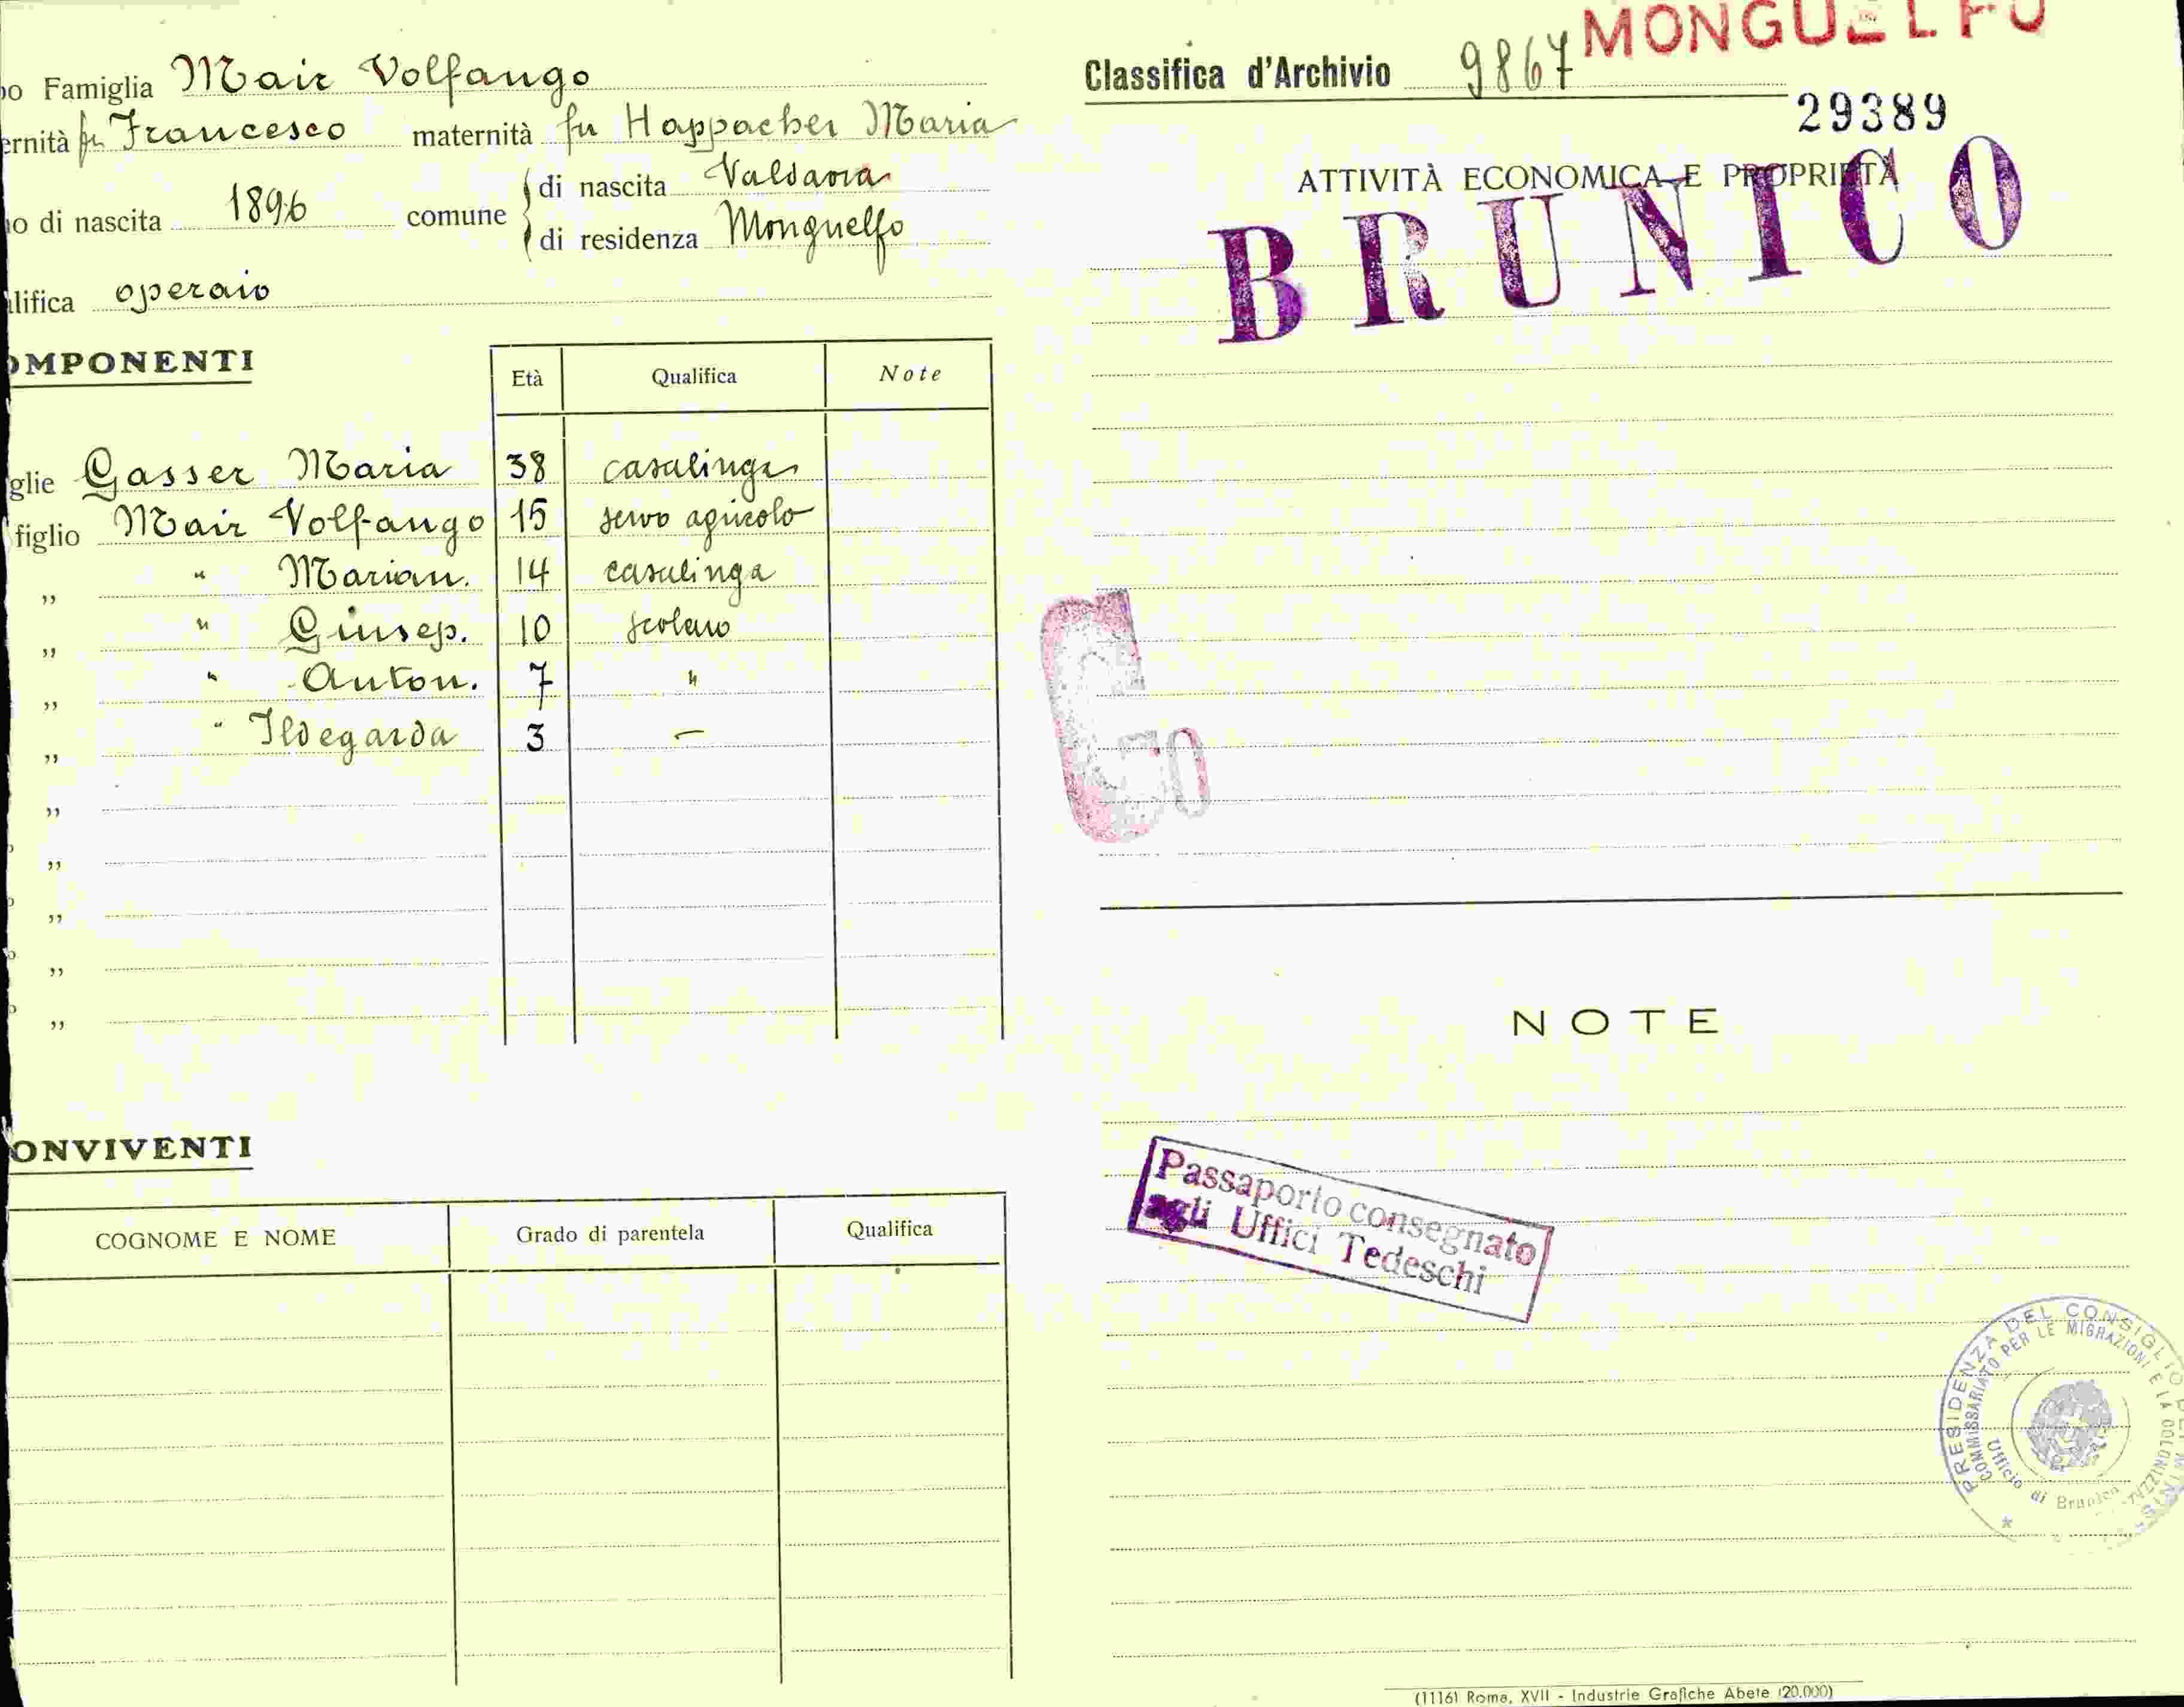 o Famiglia Mair Volfango
ernità fu Francesco maternità fu Happacher Maria
o di nascita 1896 comune di nascita Valdaora
di residenza Monguelfo
lifica operaio
OMPONENTI
Età Qualifica Note
glie Gasser Maria 38 casalinga
figlio Mair Volfango 15 servo agricolo
„ " Marian. 14 casalinga
„ " Giusep. 10 scolaro
„ " Anton. 7 "
„ " Ildegarda 3 —
„
„
„
„
„
ONVIVENTI
COGNOME E NOME Grado di parentela Qualifica
MONGUELFO
Classifica d'Archivio 9867
29389
ATTIVITÀ ECONOMICA E PROPRIETÀ
BRUNICO
NOTE
Passaporto consegnato
agli Uffici Tedeschi
PRESIDENZA DEL CONSIGLIO DEI MINIS
COMMISSARIATO PER LE MIGRAZIONI E LA COLONIZZAZ.
Ufficio di Brunico
(1116) Roma, XVII - Industrie Grafiche Abete (20.000)